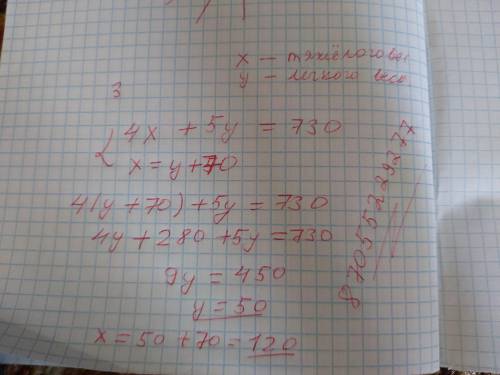 x – тяжёлого вес
y – легкого веса
3
{ 4x + 5y = 730
x = y + 70
4(y + 70) + 5y = 730
4y + 280 + 5y = 730
9y = 450
y = 50
x = 50 + 70 = 120